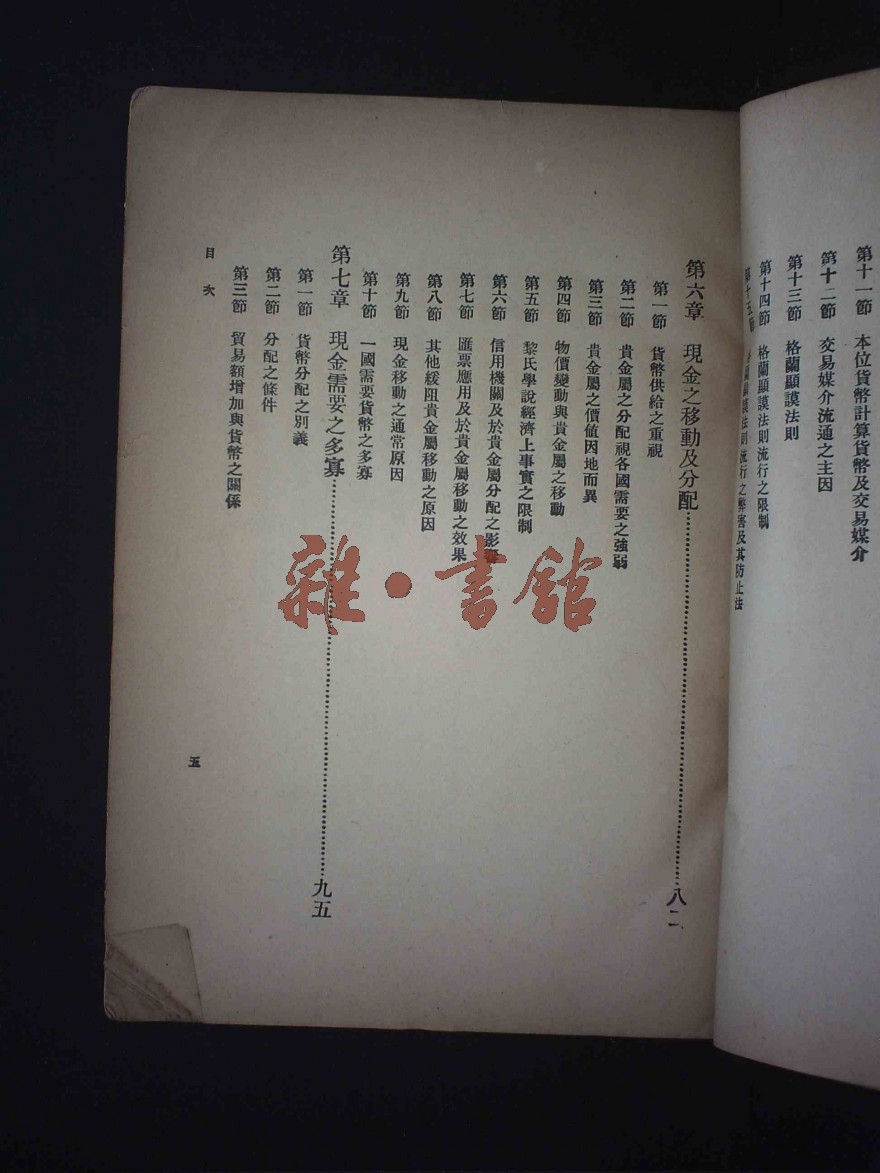 第十一節 本位貨幣計算貨幣及交易媒介
第十二節 交易媒介流通之主因
第十三節 格蘭顯謨法則
第十四節 格蘭顯謨法則流行之限制
第十五節 蘭顯謨法則流行之弊害及其防止法
第六章 現金之移動及分配……八二
第一節 貨幣供給之重視
第二節 貴金屬之分配視各國需要之強弱
第三節 貴金屬之價值因地而異
第四節 物價變動與貴金屬之移動
第五節 黎氏學說經濟上事實之限制
第六節 信用機關及於貴金屬分配之影響
第七節 匯票應用及於貴金屬移動之效果
第八節 其他緩阻貴金屬移動之原因
第九節 現金移動之通常原因
第十節 一國需要貨幣之多寡
第七章 現金需要之多寡……九五
第一節 貨幣分配之別義
第二節 分配之條件
第三節 貿易額增加與貨幣之關係
目次
五
雜·書館